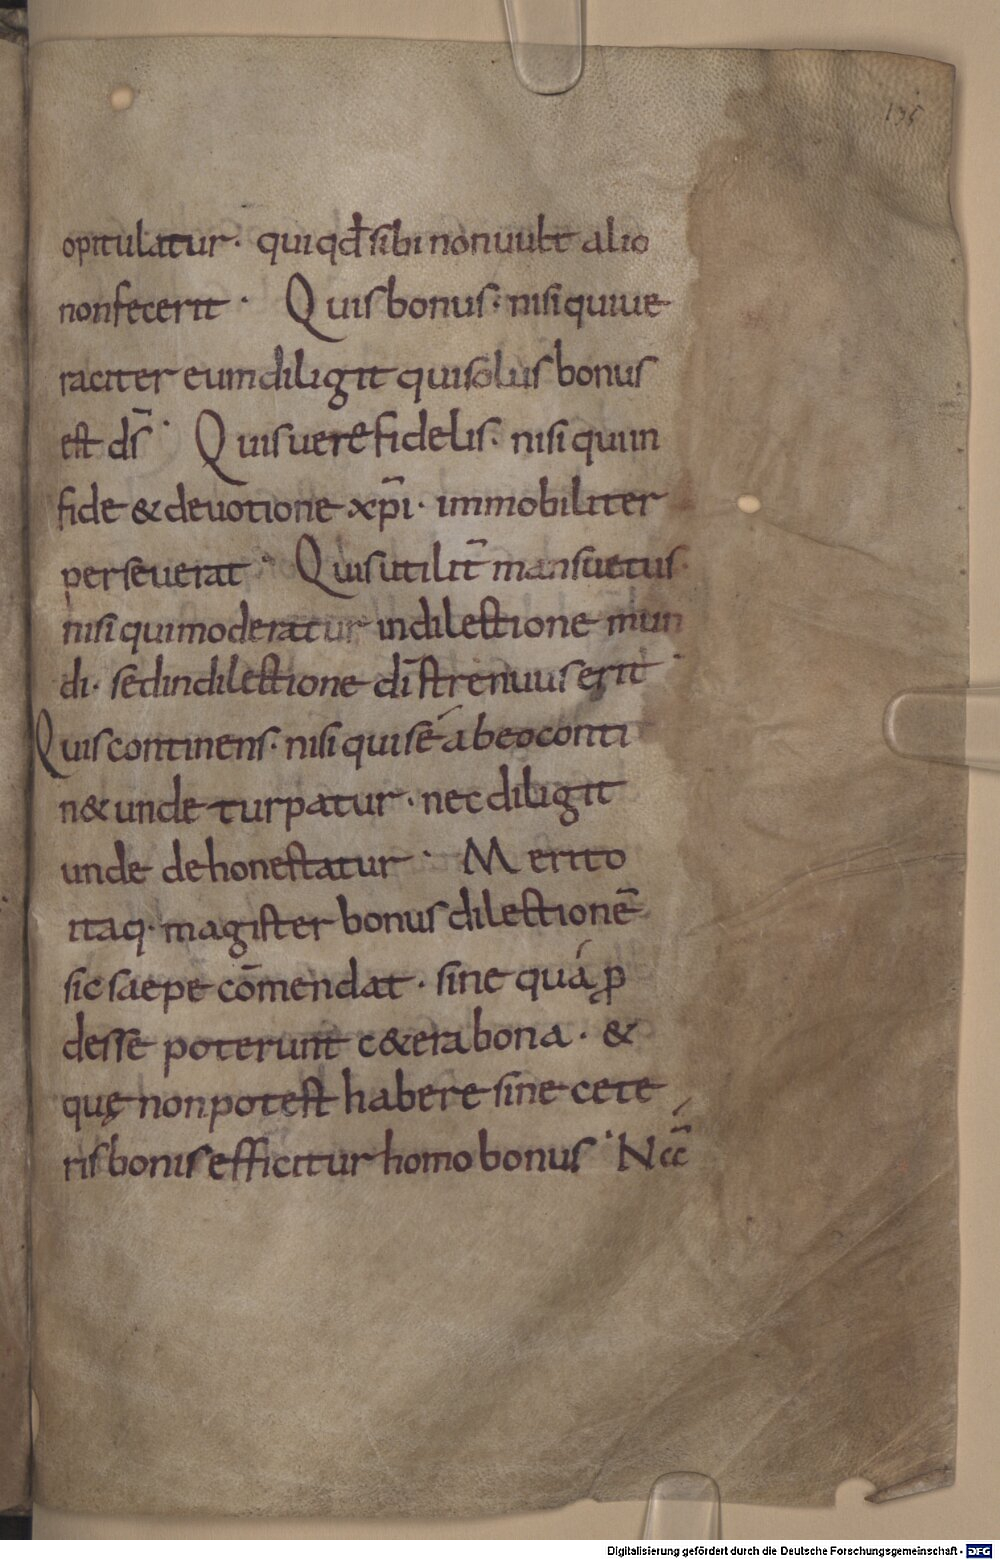 135
opitulatur · qui qđ sibi non uult alio
non fecerit · Quis bonus · nisi qui ue
raciter eum diligit qui solus bonus
est ds̄ · Quis uere fidelis · nisi qui in
fide & deuotione xp̄i · immobiliter
perseuerat · Quis utilit̄ mansuetus ·
nisi qui moderatur in dilectione mun
di · sed in dilectione dī strenuus erit ·
Quis continens · nisi qui se ab eo conti
n& unde turpatur · nec diligit
unde dehonestatur · Merito
itaq· magister bonus dilectionē
sic saepe cōmendat · sine qua ꝓ
desse poterunt c&era bona · &
quę non potest habere sine cete
ris bonis efficitur homo bonus ·
Digitalisierung gefördert durch die Deutsche Forschungsgemeinschaft - DFG